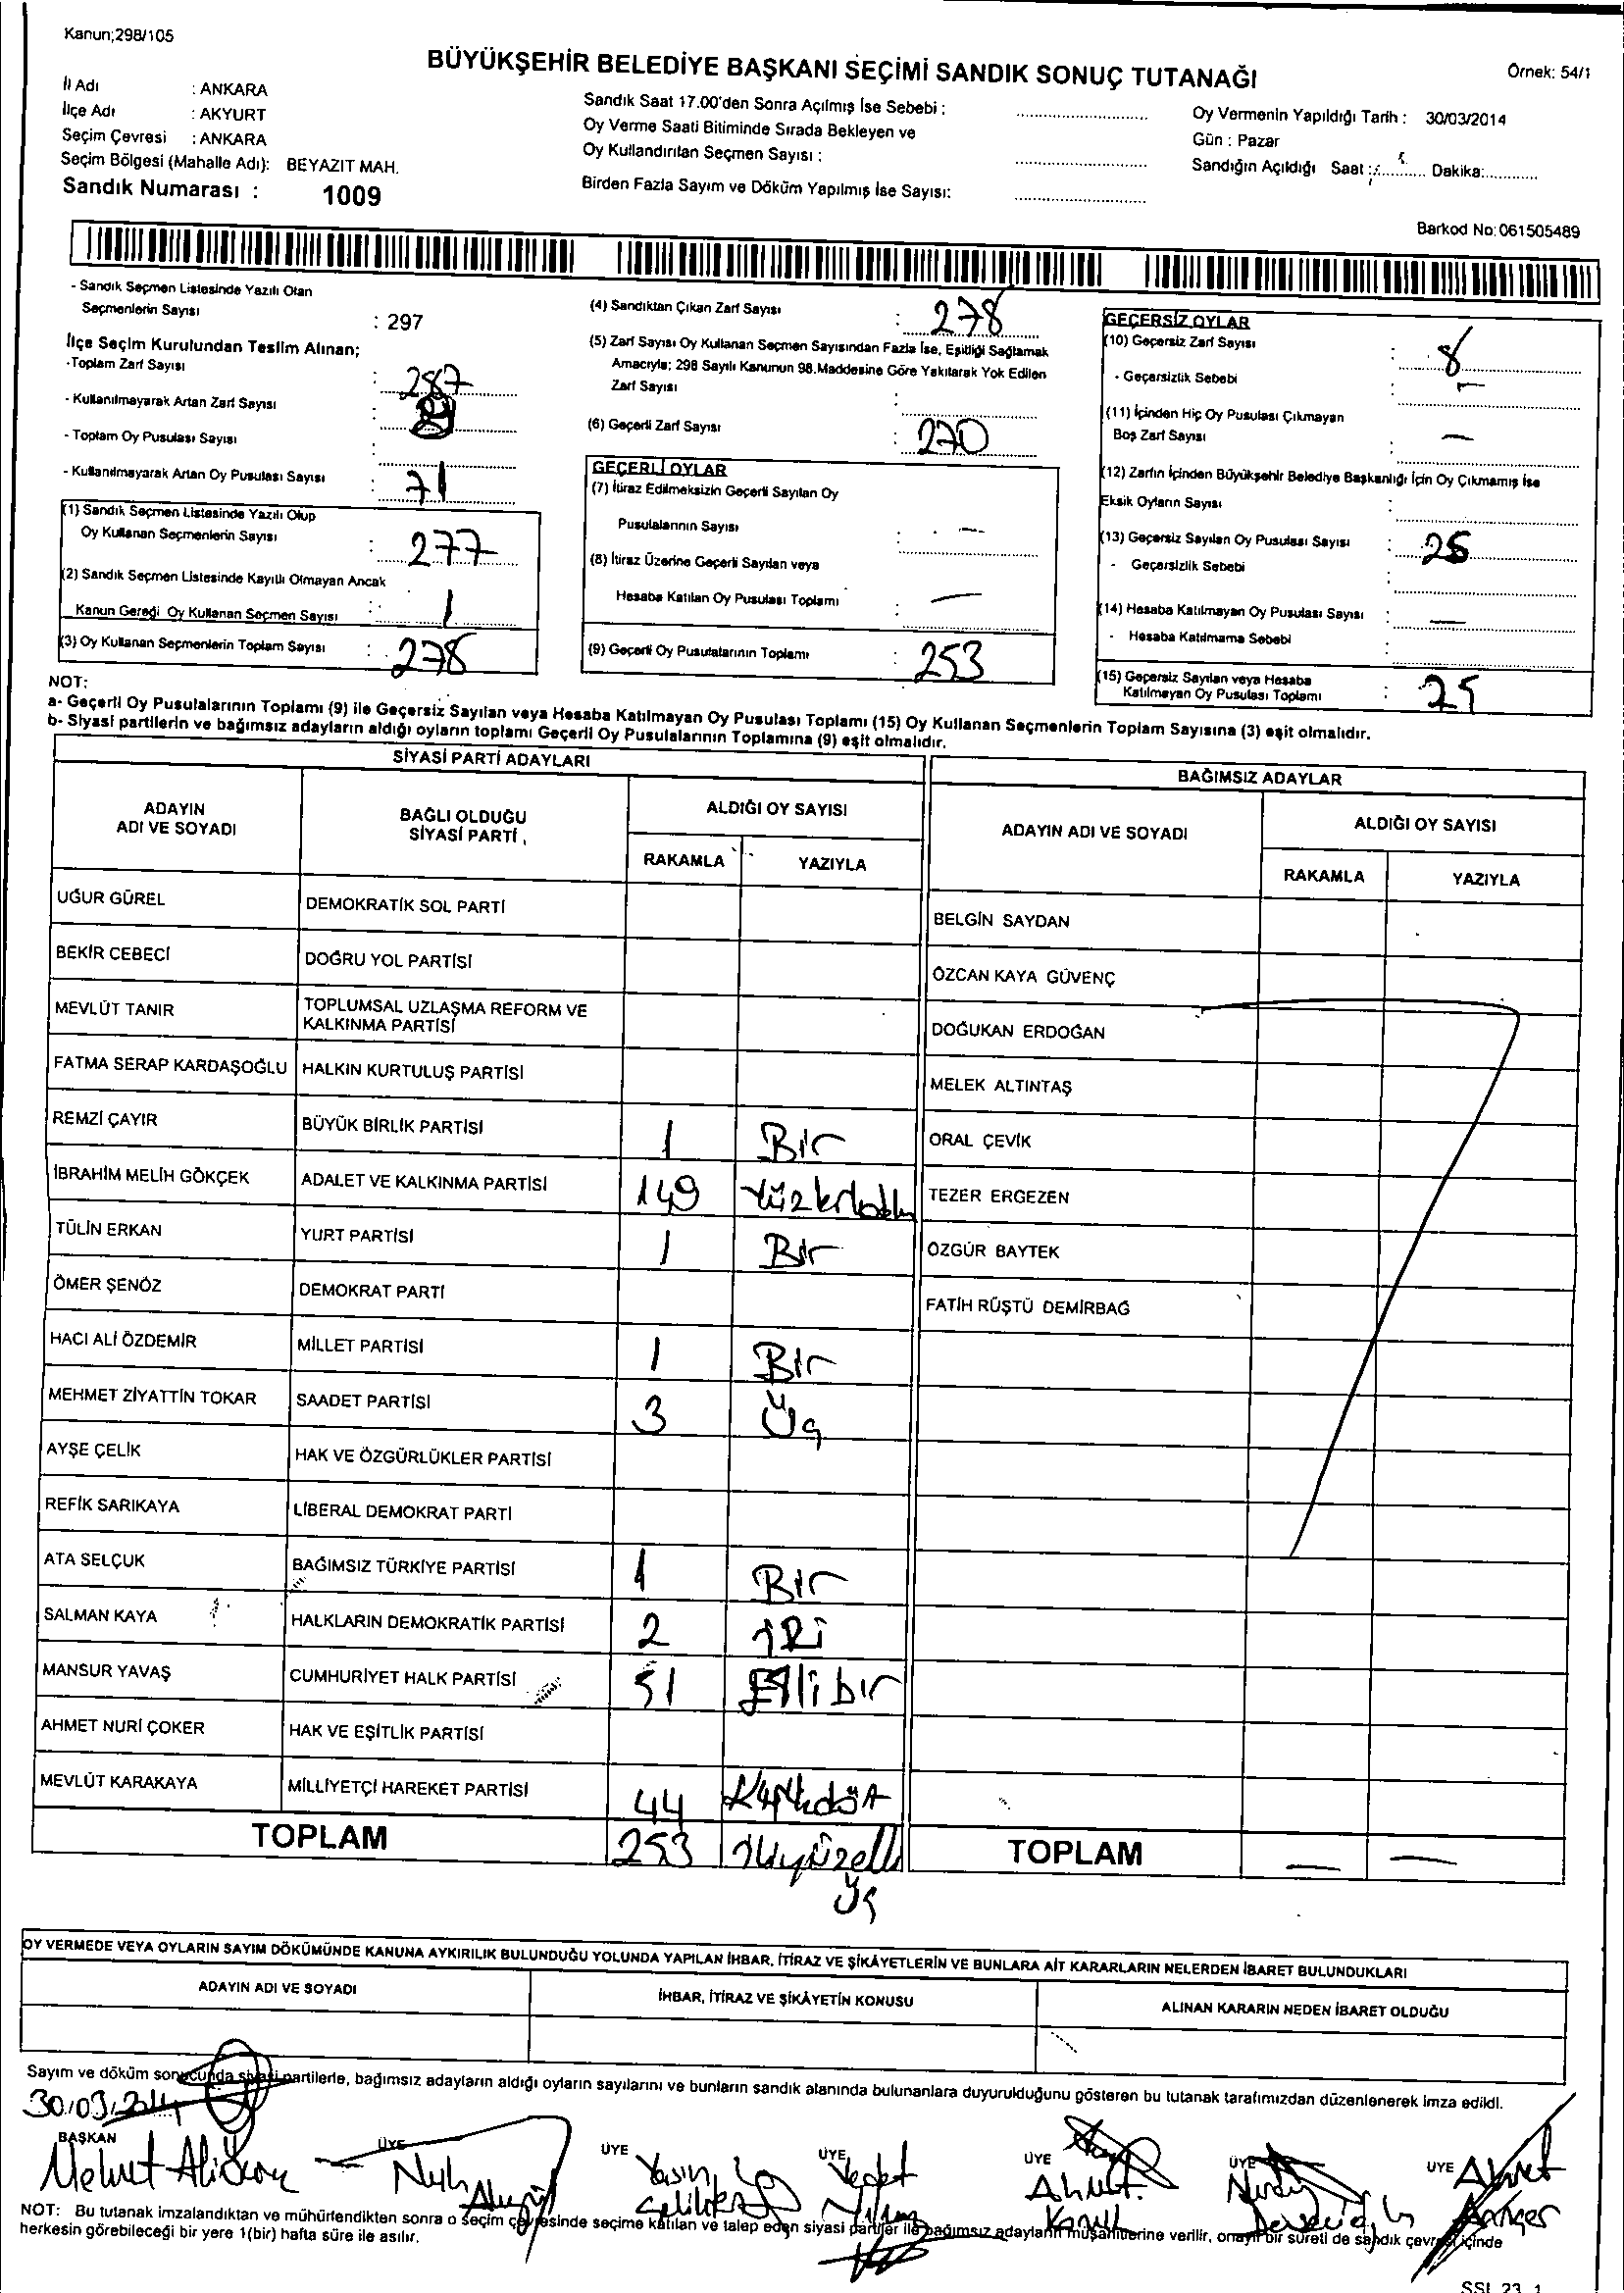 Kanun;298/105
BÜYÜKŞEHİR BELEDİYE BAŞKANI SEÇİMİ SANDIK SONUÇ TUTANAĞI
Örnek: 54/1
İl Adı : ANKARA
İlçe Adı : AKYURT
Seçim Çevresi : ANKARA
Seçim Bölgesi (Mahalle Adı): BEYAZIT MAH.
Sandık Numarası : 1009
Sandık Saat 17.00'den Sonra Açılmış İse Sebebi :
Oy Verme Saati Bitiminde Sırada Bekleyen ve
Oy Kullandırılan Seçmen Sayısı :
Birden Fazla Sayım ve Döküm Yapılmış İse Sayısı:
Oy Vermenin Yapıldığı Tarih : 30/03/2014
Gün : Pazar
Sandığın Açıldığı Saat : Dakika:
Barkod No:061505489
- Sandık Seçmen Listesinde Yazılı Olan
Seçmenlerin Sayısı : 297
İlçe Seçim Kurulundan Teslim Alınan;
-Toplam Zarf Sayısı : 287
- Kullanılmayarak Artan Zarf Sayısı :
- Toplam Oy Pusulası Sayısı :
- Kullanılmayarak Artan Oy Pusulası Sayısı : 71
(1) Sandık Seçmen Listesinde Yazılı Olup
Oy Kullanan Seçmenlerin Sayısı : 277
(2) Sandık Seçmen Listesinde Kayıtlı Olmayan Ancak
Kanun Gereği Oy Kullanan Seçmen Sayısı : 1
(3) Oy Kullanan Seçmenlerin Toplam Sayısı : 278
(4) Sandıktan Çıkan Zarf Sayısı : 278
(5) Zarf Sayısı Oy Kullanan Seçmen Sayısından Fazla İse, Eşitliği Sağlamak
Amacıyla; 298 Sayılı Kanunun 98.Maddesine Göre Yakılarak Yok Edilen
Zarf Sayısı :
(6) Geçerli Zarf Sayısı : 270
GEÇERLİ OYLAR
(7) İtiraz Edilmeksizin Geçerli Sayılan Oy
Pusulalarının Sayısı : —
(8) İtiraz Üzerine Geçerli Sayılan veya
Hesaba Katılan Oy Pusulası Toplamı : —
(9) Geçerli Oy Pusulalarının Toplamı : 253
GEÇERSİZ OYLAR
(10) Geçersiz Zarf Sayısı : 8
- Geçersizlik Sebebi : —
(11) İçinden Hiç Oy Pusulası Çıkmayan
Boş Zarf Sayısı : —
(12) Zarfın İçinden Büyükşehir Belediye Başkanlığı İçin Oy Çıkmamış İse
Eksik Oyların Sayısı :
(13) Geçersiz Sayılan Oy Pusulası Sayısı : 25
- Geçersizlik Sebebi :
(14) Hesaba Katılmayan Oy Pusulası Sayısı : —
- Hesaba Katılmama Sebebi :
(15) Geçersiz Sayılan veya Hesaba
Katılmayan Oy Pusulası Toplamı : 25
NOT:
a- Geçerli Oy Pusulalarının Toplamı (9) ile Geçersiz Sayılan veya Hesaba Katılmayan Oy Pusulası Toplamı (15) Oy Kullanan Seçmenlerin Toplam Sayısına (3) eşit olmalıdır.
b- Siyasi partilerin ve bağımsız adayların aldığı oyların toplamı Geçerli Oy Pusulalarının Toplamına (9) eşit olmalıdır.
SİYASİ PARTİ ADAYLARI
ADAYIN
ADI VE SOYADI
BAĞLI OLDUĞU
SİYASİ PARTİ
ALDIĞI OY SAYISI
RAKAMLA YAZIYLA
UĞUR GÜREL DEMOKRATİK SOL PARTİ
BEKİR CEBECİ DOĞRU YOL PARTİSİ
MEVLÜT TANIR TOPLUMSAL UZLAŞMA REFORM VE
KALKINMA PARTİSİ
FATMA SERAP KARDAŞOĞLU HALKIN KURTULUŞ PARTİSİ
REMZİ ÇAYIR BÜYÜK BİRLİK PARTİSİ 1 Bir
İBRAHİM MELİH GÖKÇEK ADALET VE KALKINMA PARTİSİ 149
TÜLİN ERKAN YURT PARTİSİ 1 Bir
ÖMER ŞENÖZ DEMOKRAT PARTİ
HACI ALİ ÖZDEMİR MİLLET PARTİSİ 1 Bir
MEHMET ZİYATTİN TOKAR SAADET PARTİSİ 3 Üç
AYŞE ÇELİK HAK VE ÖZGÜRLÜKLER PARTİSİ
REFİK SARIKAYA LİBERAL DEMOKRAT PARTİ
ATA SELÇUK BAĞIMSIZ TÜRKİYE PARTİSİ 1 Bir
SALMAN KAYA HALKLARIN DEMOKRATİK PARTİSİ 2 iki
MANSUR YAVAŞ CUMHURİYET HALK PARTİSİ 51 Elli bir
AHMET NURİ ÇOKER HAK VE EŞİTLİK PARTİSİ
MEVLÜT KARAKAYA MİLLİYETÇİ HAREKET PARTİSİ 44 Kırkdört
TOPLAM 253 ikiyüzelli
Üç
BAĞIMSIZ ADAYLAR
ADAYIN ADI VE SOYADI
ALDIĞI OY SAYISI
RAKAMLA YAZIYLA
BELGİN SAYDAN
ÖZCAN KAYA GÜVENÇ
DOĞUKAN ERDOĞAN
MELEK ALTINTAŞ
ORAL ÇEVİK
TEZER ERGEZEN
ÖZGÜR BAYTEK
FATİH RÜŞTÜ DEMİRBAĞ
TOPLAM — —
OY VERMEDE VEYA OYLARIN SAYIM DÖKÜMÜNDE KANUNA AYKIRILIK BULUNDUĞU YOLUNDA YAPILAN İHBAR, İTİRAZ VE ŞİKÂYETLERİN VE BUNLARA AİT KARARLARIN NELERDEN İBARET BULUNDUKLARI
ADAYIN ADI VE SOYADI İHBAR, İTİRAZ VE ŞİKÂYETİN KONUSU ALINAN KARARIN NEDEN İBARET OLDUĞU
Sayım ve döküm sonucunda siyasi partilerle, bağımsız adayların aldığı oyların sayılarını ve bunların sandık alanında bulunanlara duyurulduğunu gösteren bu tutanak tarafımızdan düzenlenerek imza edildi.
30.03.2014
BAŞKAN ÜYE ÜYE ÜYE ÜYE ÜYE ÜYE
Mehmet Nuh Yasin Vedat Ahmet Ahmet
NOT: Bu tutanak imzalandıktan ve mühürlendikten sonra o seçim çevresinde seçime katılan ve talep eden siyasi partiler ile bağımsız adayların müşahitlerine verilir, onaylı bir sureti de sandık çevresi içinde
herkesin görebileceği bir yere 1(bir) hafta süre ile asılır.
SSL 23_1